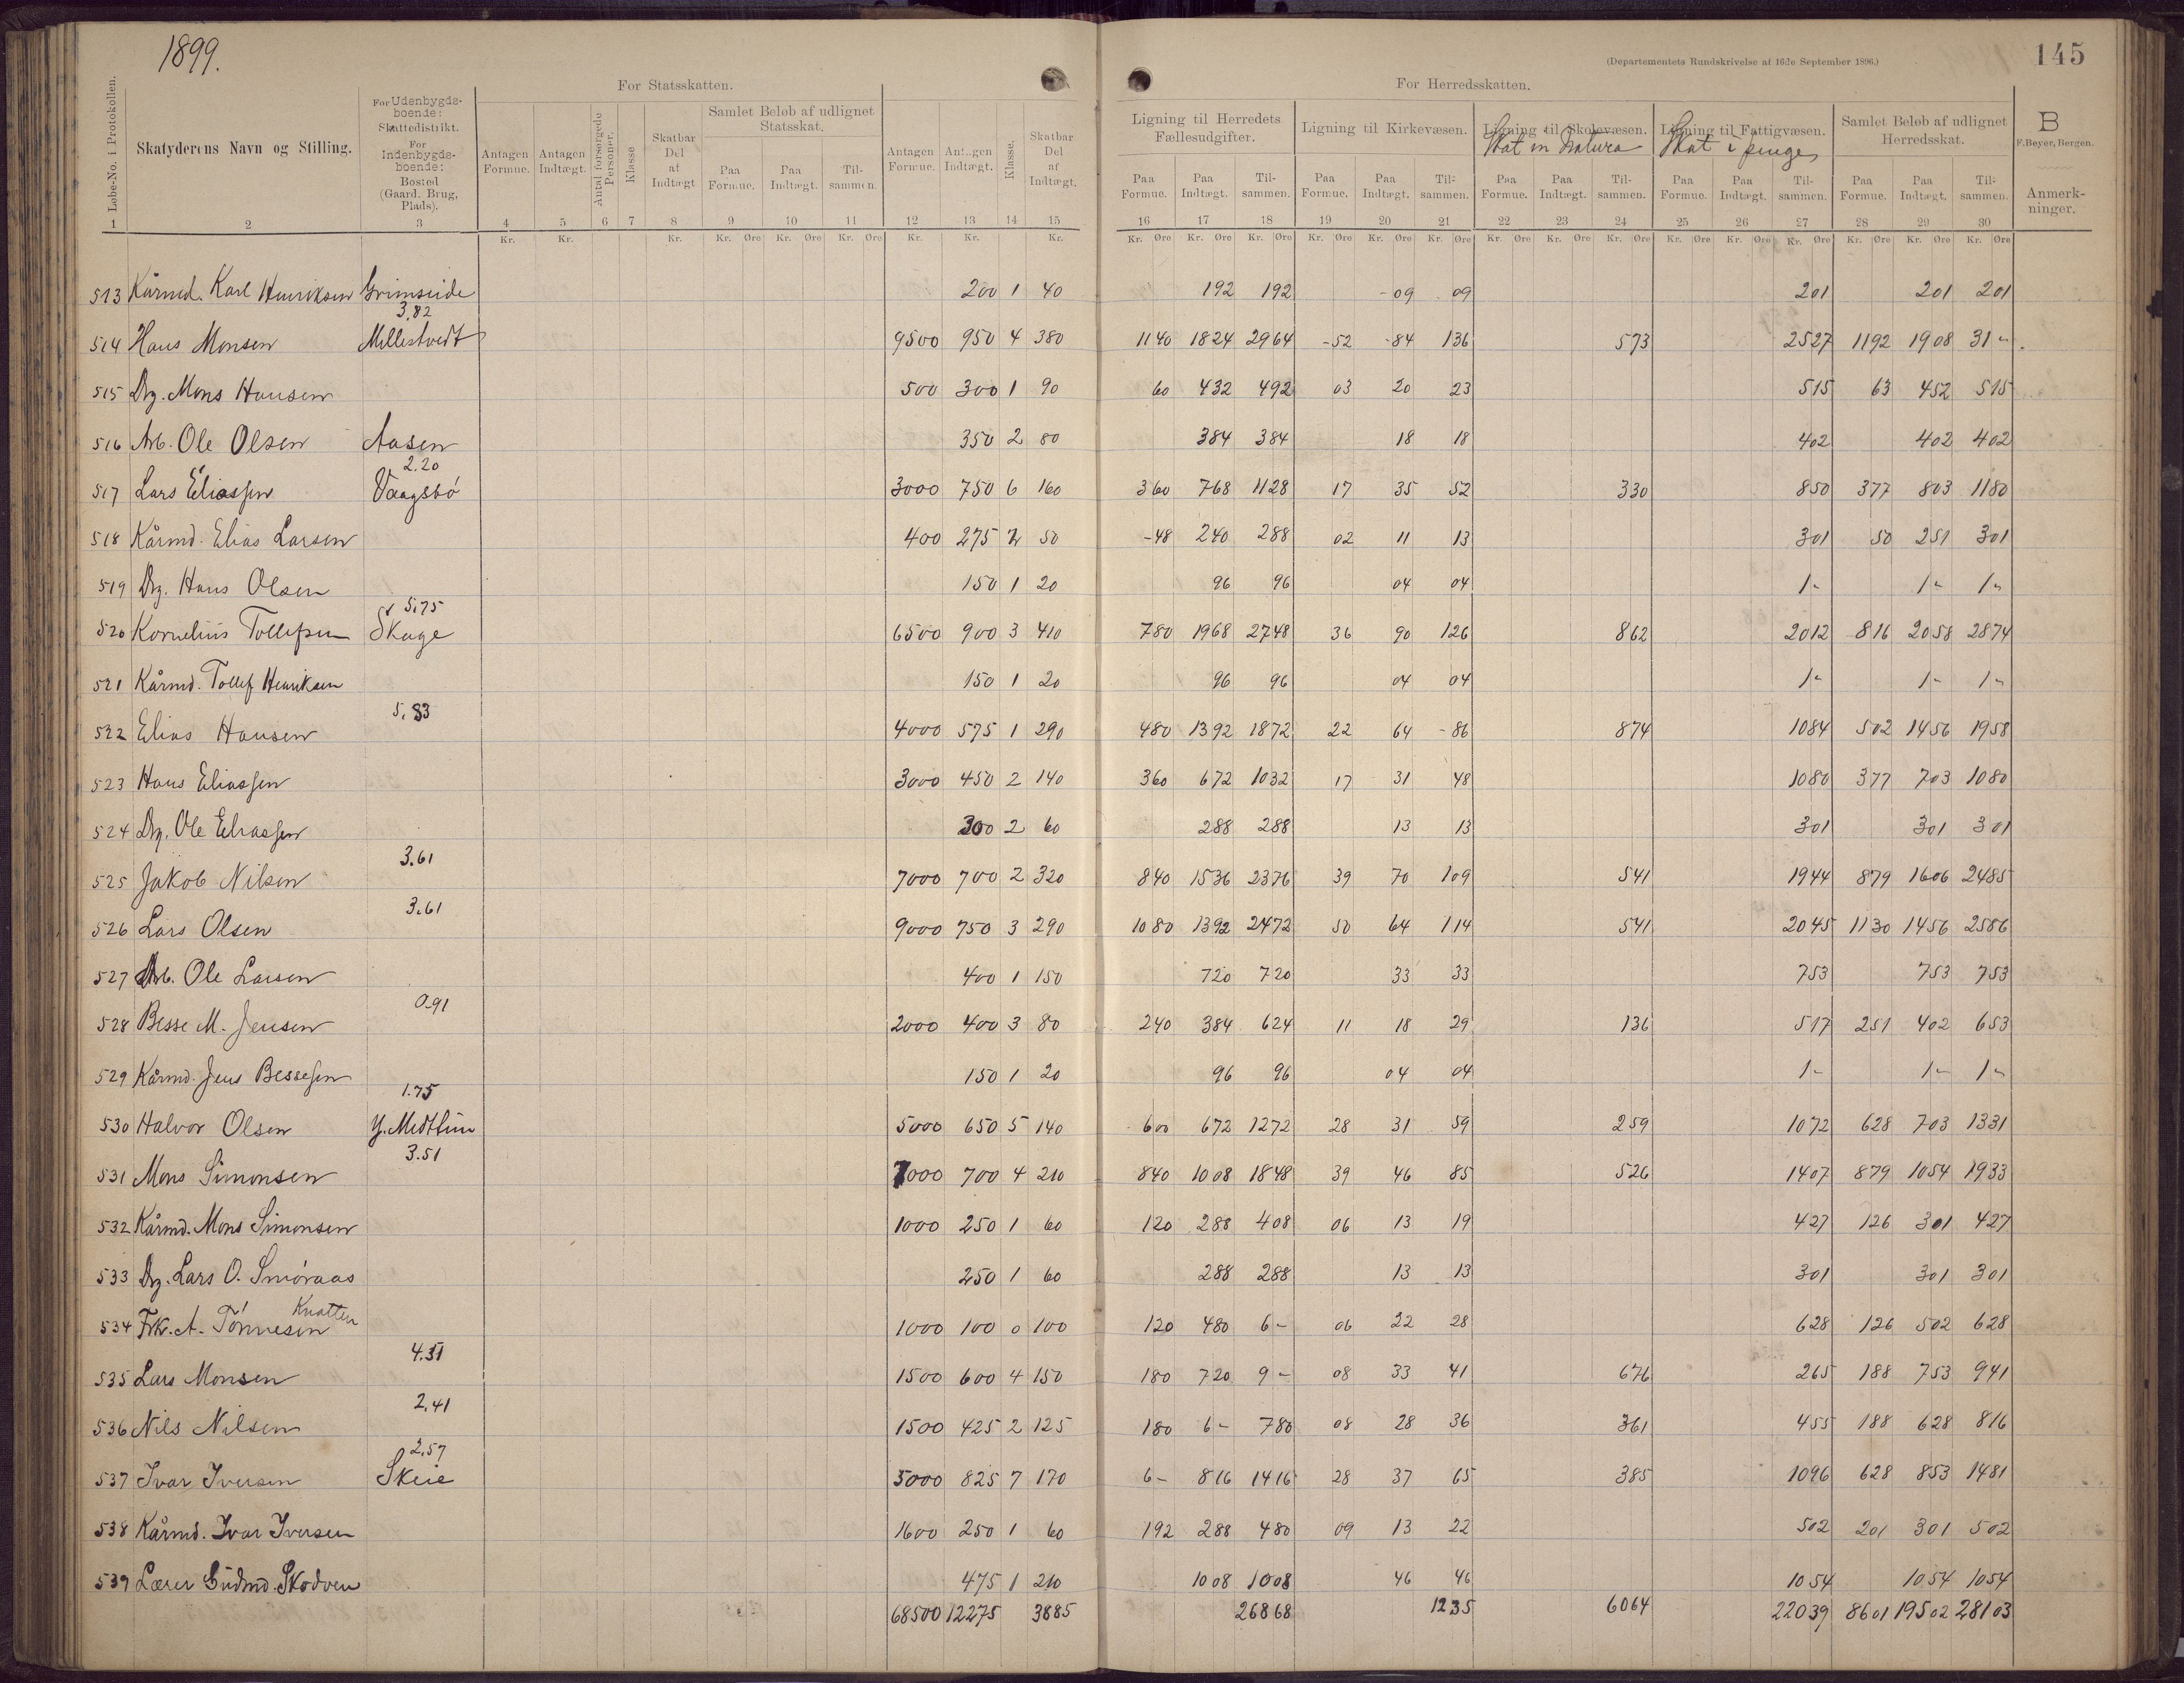 1899.
(Departementets Rundskrivelse af 16de September 1896.)
145
For Statsskatten.
For Herredsskatten.
Løbe-No. i Protokollen.
Skatyderens Navn og Stilling.
For Udenbygds-boende: Skattedistrikt. For Indenbygds-boende: Bosted (Gaard, Brug, Plads).
Antagen Formue.
Antagen Indtægt.
Antal forsørgede Personer.
Klasse
Skatbar Del af Indtægt
Samlet Beløb af udlignet Statsskat.
Paa Formue. Paa Indtægt. Til-sammen.
Antagen Formue. Antagen Indtægt. Klasse. Skatbar Del af Indtægt.
Ligning til Herredets Fællesudgifter.
Ligning til Kirkevæsen.
Ligning til Skolevæsen.
Skat in Natura
Ligning til Fattigvæsen.
Skat i penge
Samlet Beløb af udlignet Herredsskat.
Paa Formue. Paa Indtægt. Til-sammen. Paa Formue. Paa Indtægt. Til-sammen. Paa Formue. Paa Indtægt. Til-sammen. Paa Formue. Paa Indtægt. Til-sammen. Paa Formue. Paa Indtægt. Til-sammen.
B
F. Beyer, Bergen.
Anmerk-ninger.
1 2 3 4 5 6 7 8 9 10 11 12 13 14 15 16 17 18 19 20 21 22 23 24 25 26 27 28 29 30
Kr. Kr. Kr. Kr. Øre Kr. Øre Kr. Øre Kr. Kr. Kr. Kr. Øre Kr. Øre Kr. Øre Kr. Øre Kr. Øre Kr. Øre Kr. Øre Kr. Øre Kr. Øre Kr. Øre Kr. Øre Kr. Øre Kr. Øre Kr. Øre Kr. Øre
513 Kårmd. Karl Henriksen Grimseide 200 1 40 192 192 -09 09 201 201 201
3,82
514 Hans Monsen Mellestvedt 9500 950 4 380 1140 1824 2964 -52 -84 136 573 2527 1192 1908 31 -
515 Drg. Mons Hansen 500 300 1 90 60 432 492 03 20 23 515 63 452 515
516 Arb. Ole Olsen Aasen 350 2 80 384 384 18 18 402 402 402
2.20
517 Lars Eliassen Vaagsbö 3000 750 6 160 360 768 1128 17 35 52 330 850 377 803 1180
518 Kårmd. Elias Larsen 400 275 2 50 -48 240 288 02 11 13 301 50 251 301
519 Drg. Hans Olsen 150 1 20 96 96 04 04 1- 1- 1-
5.75
520 Kornelius Tollefsen Skage 6500 900 3 410 780 1968 2748 36 90 126 862 2012 816 2058 2874
521 Kårmd. Tollef Henriksen 150 1 20 96 96 04 04 1- 1- 1-
5.83
522 Elias Hansen 4000 575 1 290 480 1392 1872 22 64 -86 874 1084 502 1456 1958
523 Hans Eliassen 3000 450 2 140 360 672 1032 17 31 48 1080 377 703 1080
524 Drg. Ole Eliassen 300 2 60 288 288 13 13 301 301 301
3.61
525 Jakob Nilsen 7000 700 2 320 840 1536 2376 39 70 109 541 1944 879 1606 2485
3.61
526 Lars Olsen 9000 750 3 290 1080 1392 2472 50 64 114 541 2045 1130 1456 2586
527 Arb. Ole Larsen 400 1 150 720 720 33 33 753 753 753
0.91
528 Besse M. Jensen 2000 400 3 80 240 384 624 11 18 29 136 517 251 402 653
529 Kårmd. Jens Bessesen 150 1 20 96 96 04 04 1- 1- 1-
1.75
530 Halvor Olsen Y. Midthun 5000 650 5 140 600 672 1272 28 31 59 259 1072 628 703 1331
3.51
531 Mons Simonsen 7000 700 4 210 840 1008 1848 39 46 85 526 1407 879 1054 1933
532 Kårmd. Mons Simonsen 1000 250 1 60 120 288 408 06 13 19 427 126 301 427
533 Drg. Lars O. Smöraas 250 1 60 288 288 13 13 301 301 301
Knatten
534 Frk. A. Tönnesen 1000 100 0 100 120 480 6- 06 22 28 628 126 502 628
4.51
535 Lars Monsen 1500 600 4 150 180 720 9- 08 33 41 676 265 188 753 941
2,41
536 Nils Nilsen 1500 425 2 125 180 6- 780 08 28 36 361 455 188 628 816
2,57
537 Ivar Iversen Skeie 5000 825 7 170 6- 816 1416 28 37 65 385 1096 628 853 1481
538 Kårmd. Ivar Iversen 1600 250 1 60 192 288 480 09 13 22 502 201 301 502
539 Lærer Gudmd. Skodven 475 1 210 1008 1008 46 46 1054 1054 1054
68500 12275 3885 26868 1235 6064 22039 8601 19502 28103